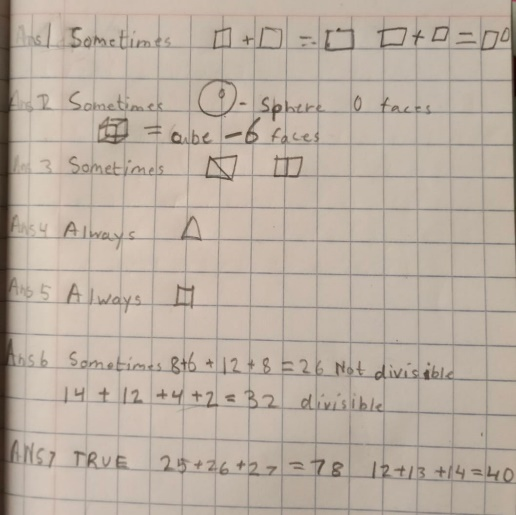 Ans1 Sometimes □ + □ = □ □ + □ = □□
Ans2 Sometimes - Sphere 0 faces
= cube - 6 faces
Ans 3 Sometimes
Ans4 Always
Ans5 Always
Ans6 Sometimes 8+6+12+8=26 Not divisible
14+12+4+2=32 divisible
ANS7 TRUE 25+26+27=78 12+13+14=40